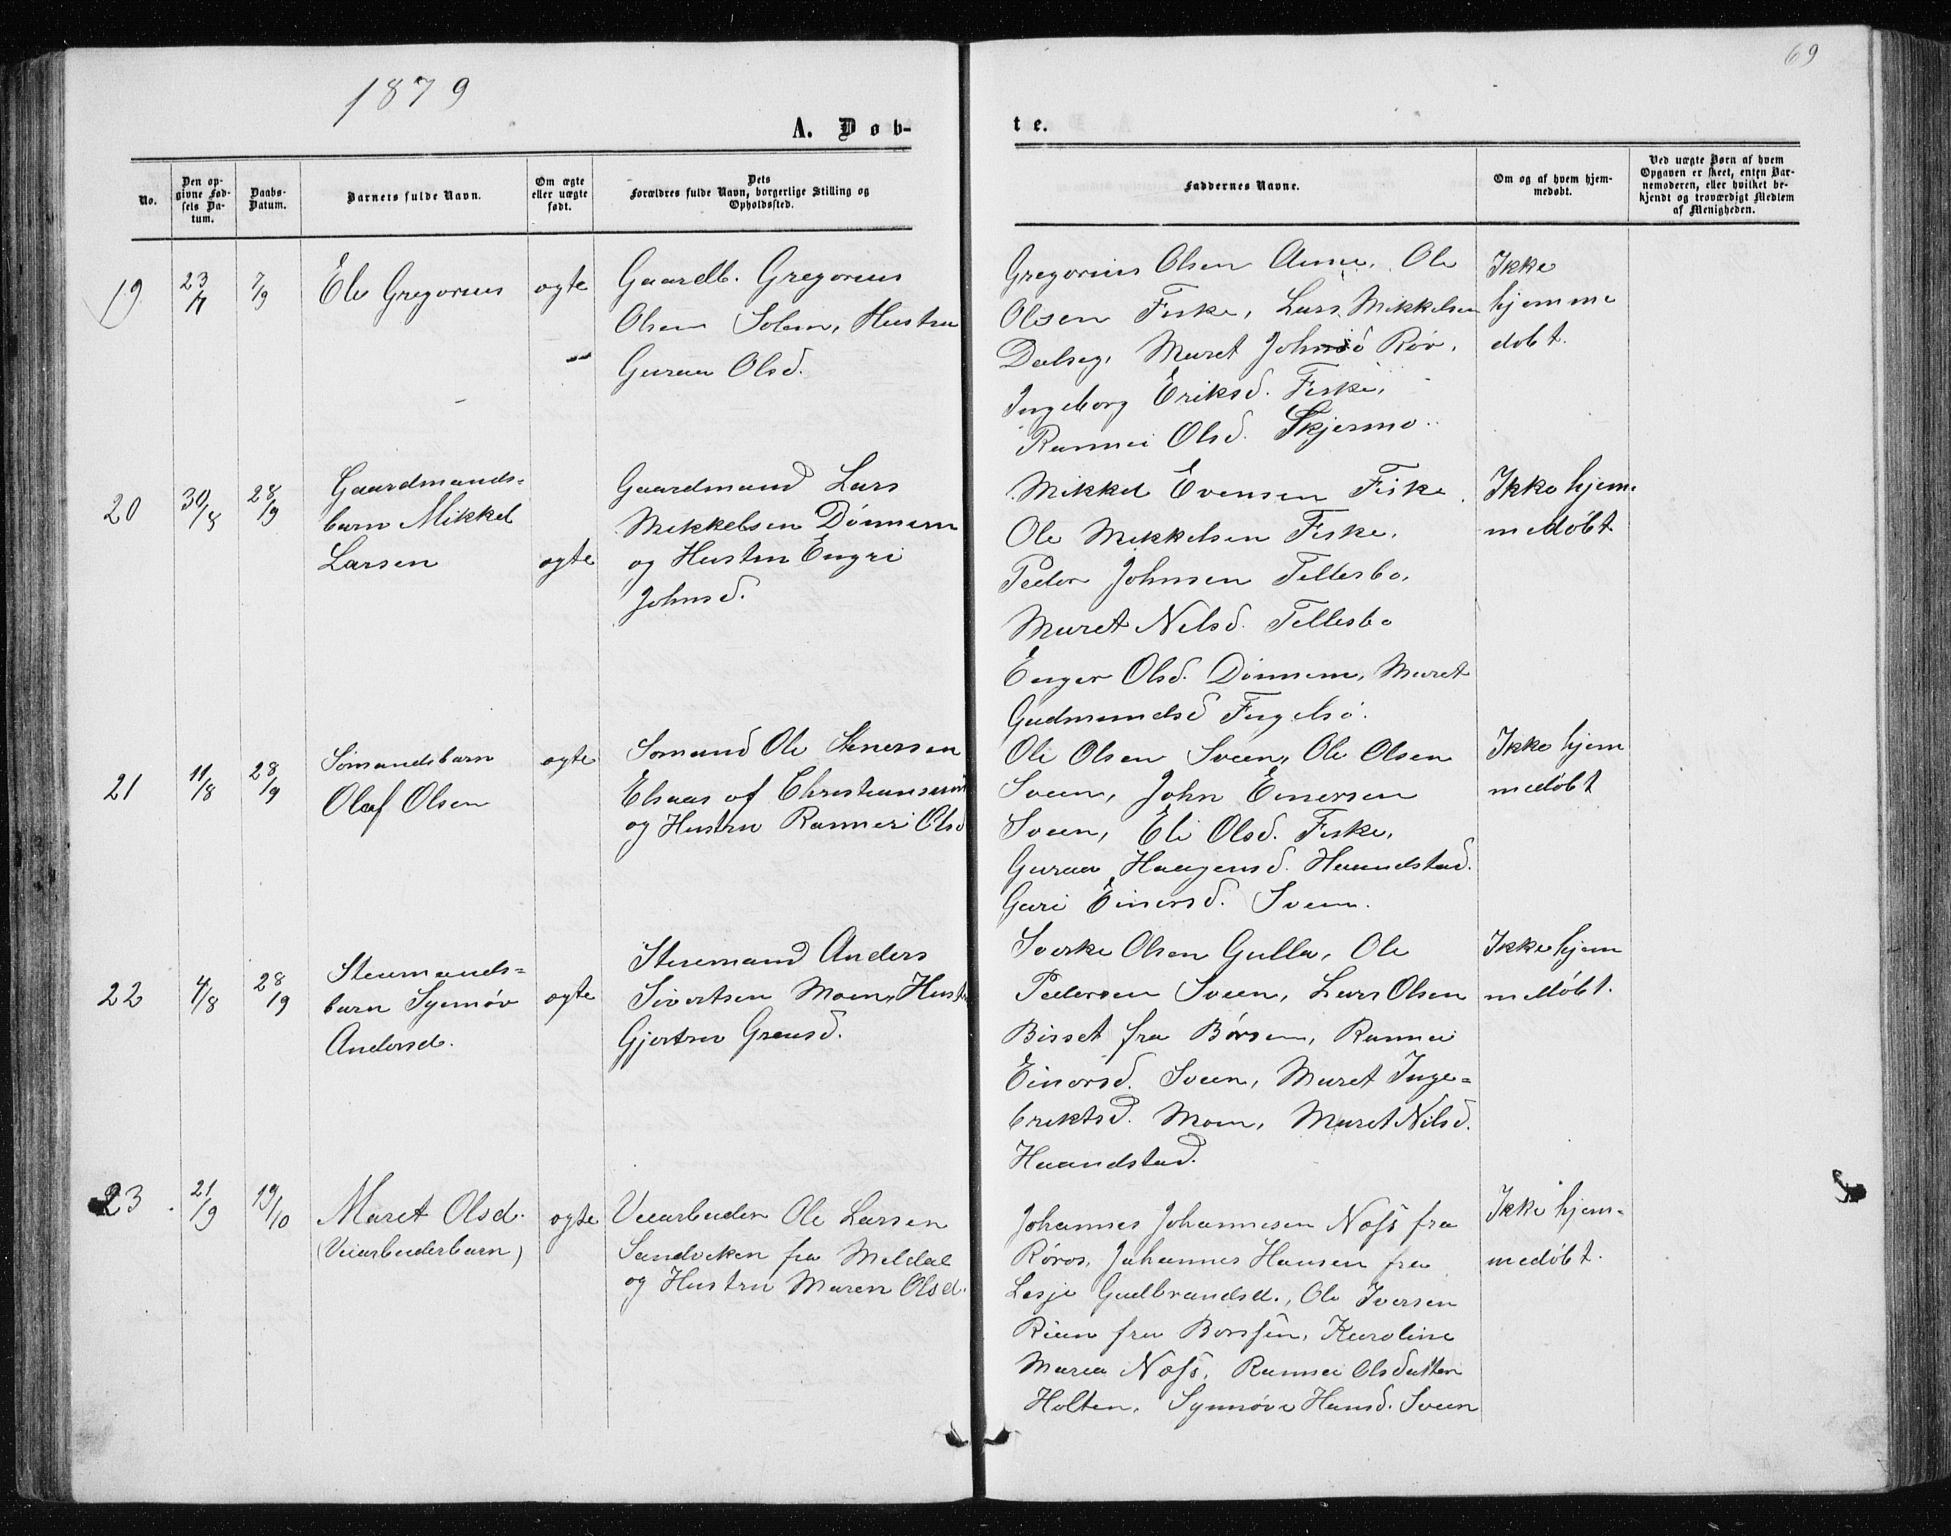 1879
69
A. Døb-
te.
No.
Den op-
givne Fød-
sels Da-
tum.
Daabs-
Datum.
Barnets fulde Navn.
Om ægte
eller uægte
født.
Dets
Forældres fulde Navn, borgerlige Stilling og
Opholdssted.
Faddernes Navne.
Om og af hvem hjem-
medøbt.
Ved uægte Børn af hvem
Opgaven er skeet, enten Bar-
nemoderen, eller hvilket be-
kjendt og troværdigt Medlem
af Menigheden.
19
23/7
7/9
Ele Gregorius
ogte
Gaardb. Gregorius
Olsen Solem, Hustru
Guraa Olsd.
Gregorius Olsen Aune, Ole
Olsen Fiske, Lars Mikkelsen
Dalseg, Maret Røv,
Ingeborg Eriksd. Fiske,
Rannei Olsd. Skjermo.
Ikke
hjemme
døbt.
20
30/8
28/9
Gaardmands-
barn Mikkel
Larsen
ogte
Gaardmand Lars
Mikkelsen Dønnem
og Hustru Engri
Johnsd.
Mikkel Evensen Fiske
Ole Mikkelsen Fiske,
Peder Johnsen Tellesbo,
Maret Nilsd. Tellesbo
Enger Olsd. Dønnem, Maret
Gudmundsd
Ikke hjem-
medøbt
21
11/8
28/9
Sømandsbarn
Olaf Olsen
ogte
Sømand Ole Stenersen
Elsaas af Christiansund
og Hustru Rannei Olsd
Ole Olsen Sveen, Ole Olsen
Sveen, John Einersen
Sveen, Eli Olsd. Fiske,
Guraa Haagensd. Haandstad.
Guri Einersd. Sveen.
Ikke hjem
medøbt
22
4/8
28/9
Stenmands-
barn Synnøv
Andersd.
ogte
Stenmand Anders
Sivertsen Moen, Hustr
Gjertru Grensd.
Sverke Olsen Gulla, Ole
Pedersen Sveen, Lars Olsen
Bisset fra Børsen, Rannei
Einersd. Sveen, Maret Inge-
briktsd. Moen, Maret Nilsd.
Haandstad.
Ikke hjem
medøbt.
23
21/9
19/10
Maret Olsd.
(Veiarbeiderbarn)
ogte
Veiarbeider Ole Larsen
Sandviken fra Meldal
og Hustru Maren Olsd.
Johannes Johannesen Nofs fra
Røros, Johannes Hansen fra
Lesje Gudbrandsd., Ole Iversen
Rien fra Borssen, Karoline
Maria Nofs, Rannei Olsdatter
Holten, Synnøve Hansd. Sveen
Ikke hjem-
medøbt.